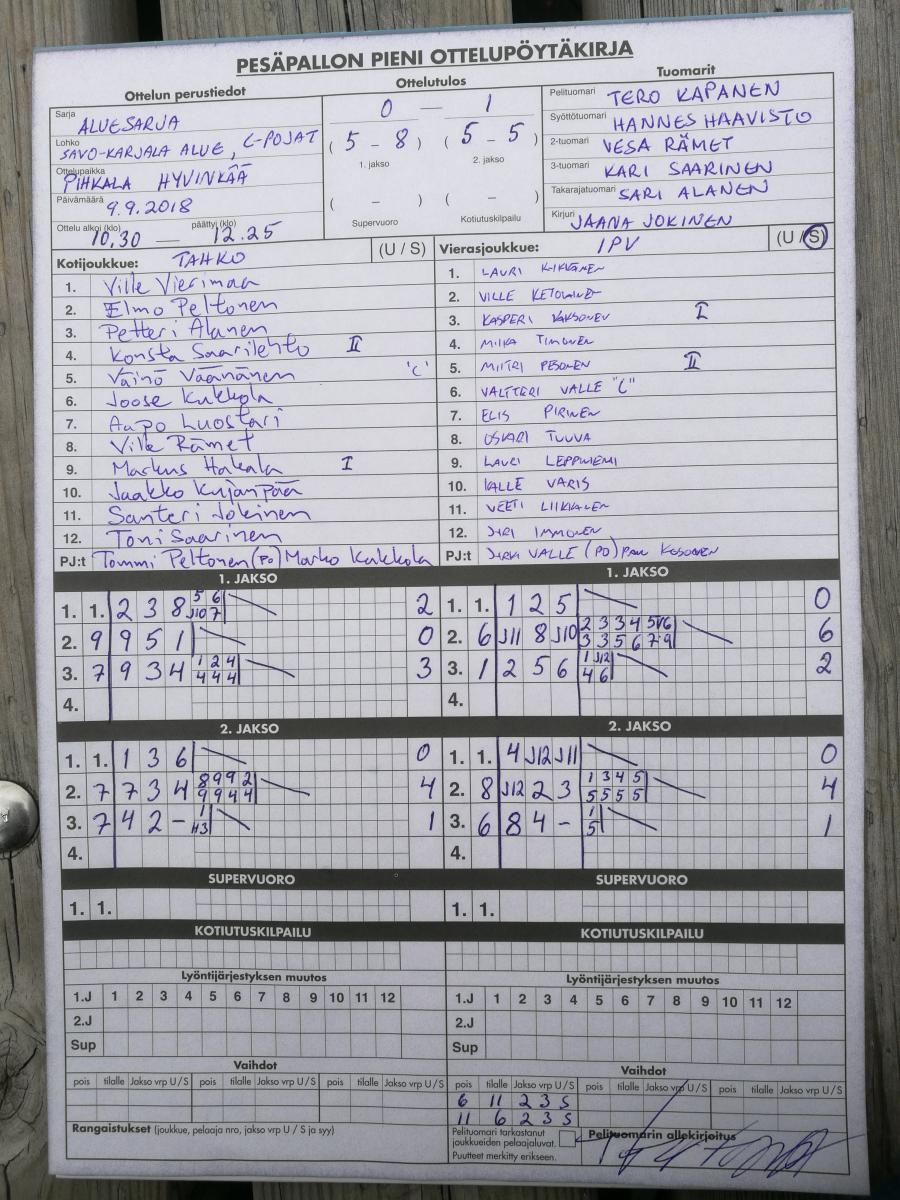 PESÄPALLON PIENI OTTELUPÖYTÄKIRJA
Ottelun perustiedot
Sarja ALUESARJA
Lohko SAVO-KARJALA ALUE, C-POJAT
Ottelupaikka PIHKALA HYVINKÄÄ
Päivämäärä 9.9.2018
Ottelu alkoi (klo) 10.30 — päättyi (klo) 12.25
Ottelutulos
0 — 1
( 5 - 8 ) ( 5 - 5 )
1. jakso 2. jakso
( - ) ( - )
Supervuoro Kotiutuskilpailu
Tuomarit
Pelituomari TERO KAPANEN
Syöttötuomari HANNES HAAVISTO
2-tuomari VESA RÄMET
3-tuomari KARI SAARINEN
Takarajatuomari SARI ALANEN
Kirjuri JAANA JOKINEN
Kotijoukkue: TAHKO (U / S)
1. Ville Vierimaa
2. Elmo Peltonen
3. Petteri Alanen
4. Konsta Saarilehto II
5. Väinö Väänänen 'C'
6. Joose Kukkola
7. Aapo Luostari
8. Ville Rämet
9. Markus Hakala I
10. Jaakko Kujanpää
11. Santeri Jokinen
12. Toni Saarinen
PJ:t Tommi Peltonen (PO) Marko Kukkola
Vierasjoukkue: IPV (U / S)
1. LAURI
2. VILLE KETOLAINEN
3. KASPERI I
4. MIIKA TIMONEN
5. PESONEN II
6. VALTTERI VALLE "C"
7. ELIS PIRINEN
8. OSKARI TUUVA
9. LAURI LEPPINIEMI
10. KALLE VARIS
11. VEETI LIIKANEN
12. JIRI IMMONEN
PJ:t VALLE (PO) KOSONEN
1. JAKSO
1. 1. 2 3 8 5 6 2
J10 7
2. 9 9 5 1 0
3. 7 9 3 4 1 2 4 3
4 4 4
4.
1. JAKSO
1. 1. 1 2 5 0
2. 6 J11 8 J10 2 3 3 4 5 6 6
3 3 5 6 7 9
3. 1 2 5 6 1 J12 2
4 6
4.
2. JAKSO
1. 1. 1 3 6 0
2. 7 7 3 4 8 9 9 2 4
9 9 4 4
3. 7 4 2 - 1 1
H3
4.
2. JAKSO
1. 1. 4 J12 J11 0
2. 8 J12 2 3 1 3 4 5 4
5 5 5 5
3. 6 8 4 - 1 1
5
4.
SUPERVUORO
1. 1.
SUPERVUORO
1. 1.
KOTIUTUSKILPAILU
KOTIUTUSKILPAILU
Lyöntijärjestyksen muutos
1.J 1 2 3 4 5 6 7 8 9 10 11 12
2.J
Sup
Lyöntijärjestyksen muutos
1.J 1 2 3 4 5 6 7 8 9 10 11 12
2.J
Sup
Vaihdot
pois tilalle Jakso vrp U / S pois tilalle Jakso vrp U / S pois tilalle Jakso vrp U / S
Vaihdot
pois tilalle Jakso vrp U / S pois tilalle Jakso vrp U / S pois tilalle Jakso vrp U / S
6 11 2 3 S
11 6 2 3 S
Rangaistukset (joukkue, pelaaja nro, jakso vrp U / S ja syy)
Pelituomari tarkastanut
joukkueiden pelaajaluvat.
Puutteet merkitty erikseen.
Pelituomarin allekirjoitus